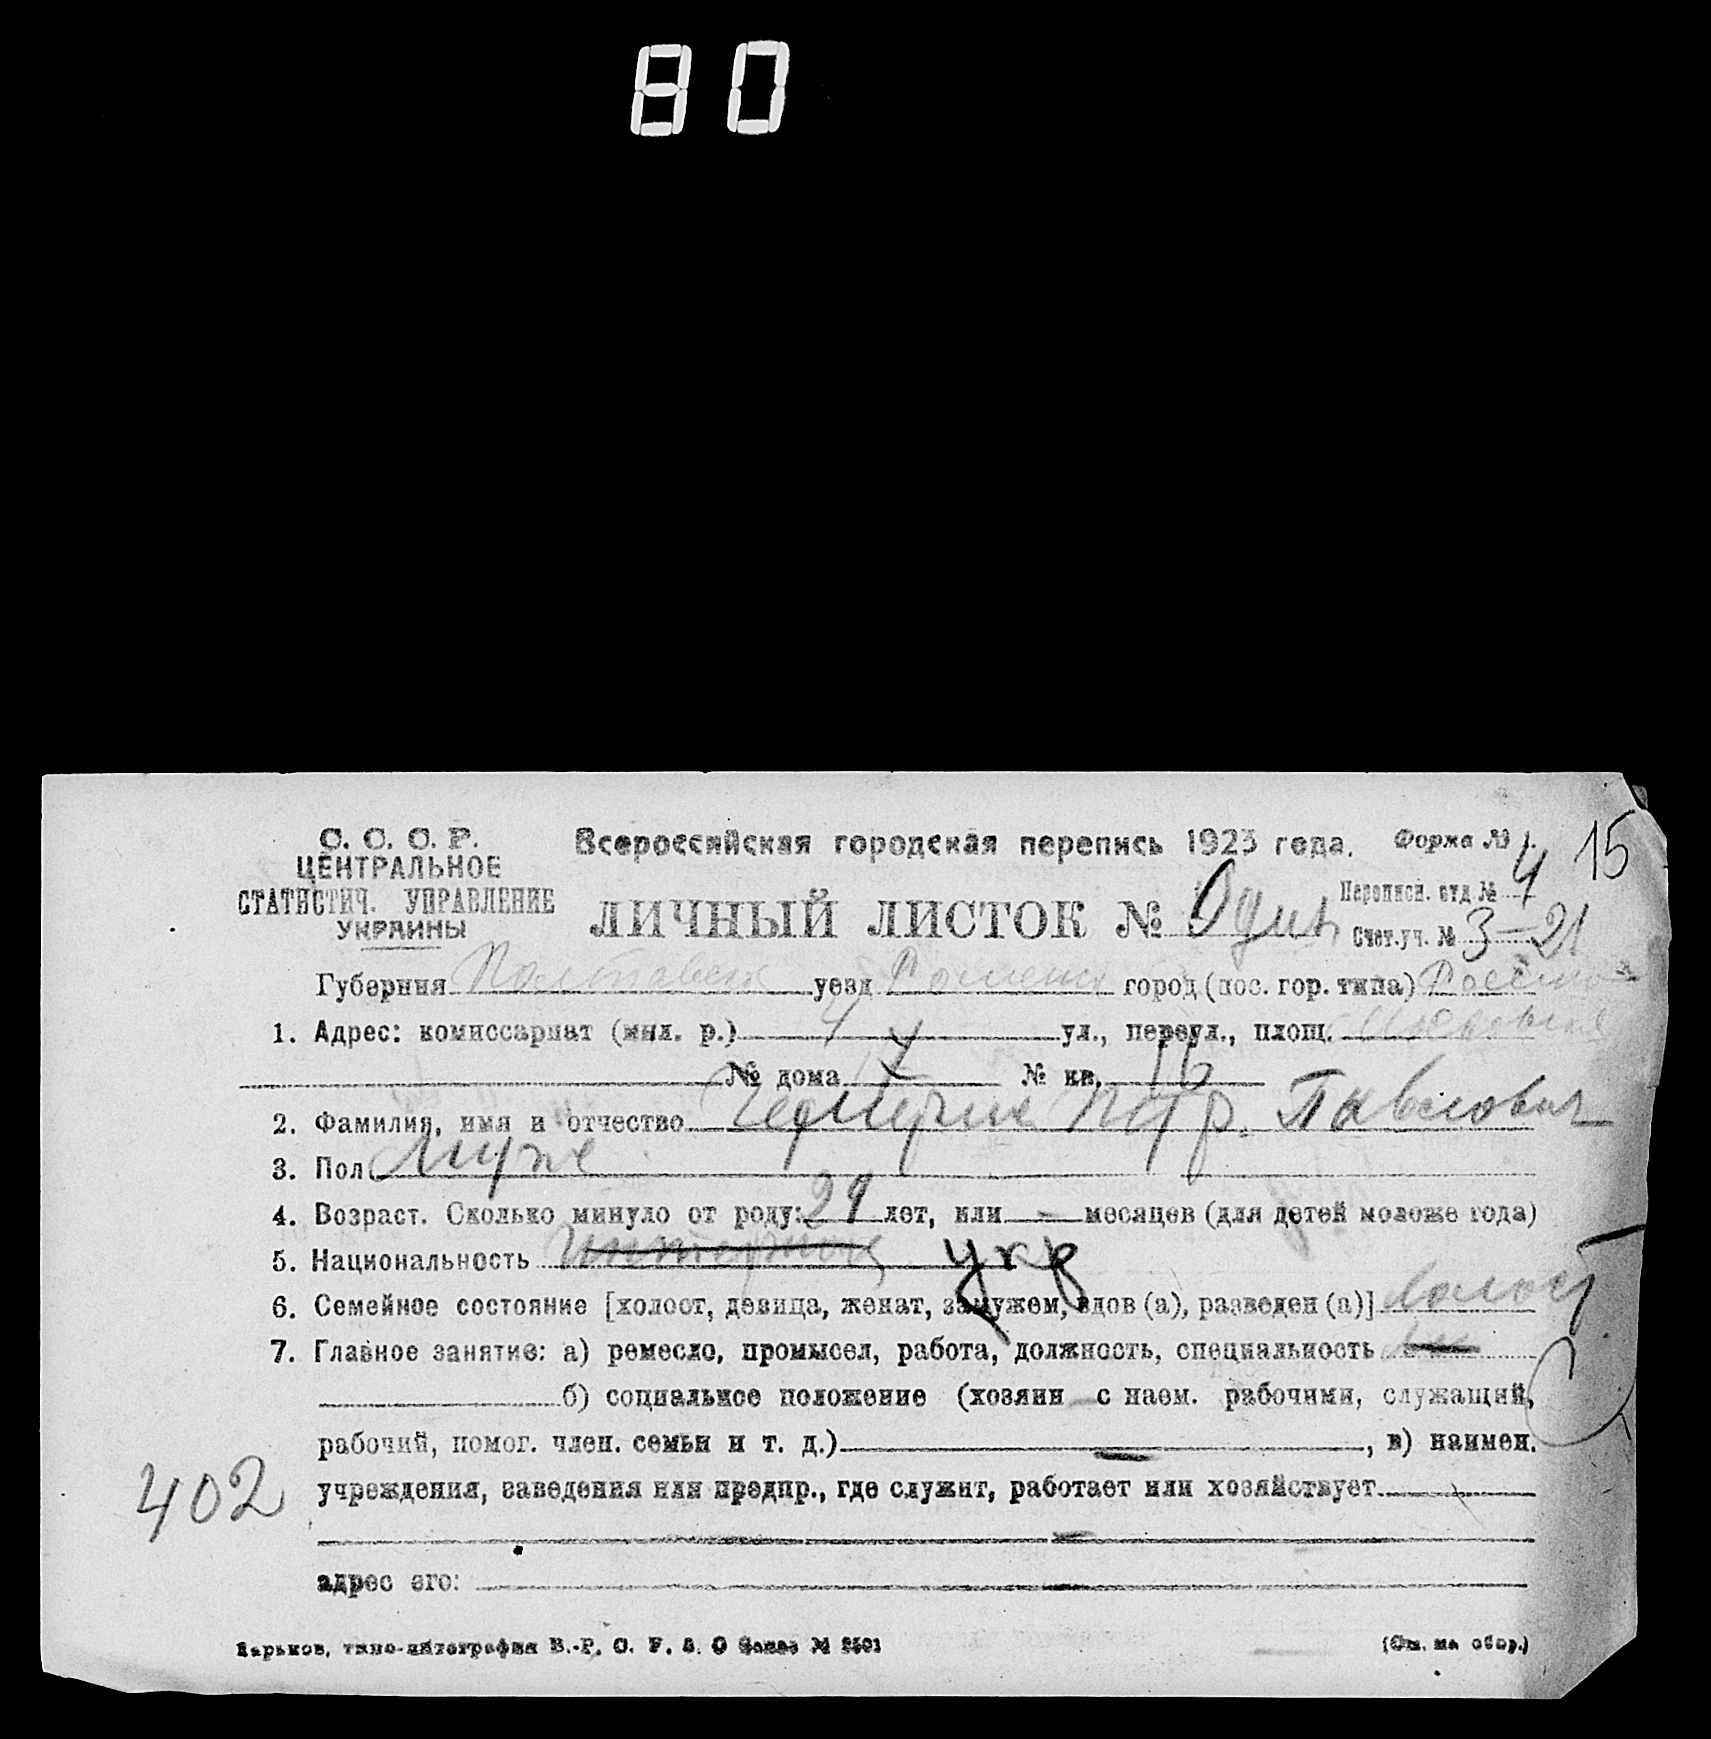 80
С. С. С. Р.
ЦЕНТРАЛЬНОЕ
СТАТИСТИЧ. УПРАВЛЕНИЕ
УКРАИНЫ
Всероссийская городская перепись 1923 года.
Форма № 1.
15
ЛИЧНЫЙ ЛИСТОК № Один
Переписн. отд № 4
Счет.уч. № 3-21
Губерния Полтавск уезд Роменск город (пос. гор. типа)
1. Адрес: комиссариат (мил. р.) 4 ул., переул., площ.
№ дома № кв. 16
2. Фамилия, имя и отчество Павлович
3. Пол Муж
4. Возраст. Сколько минуло от роду: 29 лет, или - месяцев (для детей моложе года)
5. Национальность укр
6. Семейное состояние [холост, девица, женат, замужем, вдов (а), разведен (а)] холост
7. Главное занятие: а) ремесло, промысел, работа, должность, специальность
б) социальное положение (хозяин с наем. рабочими, служащий,
рабочий, помог. член. семьи и т. д.) , в) наимен.
402
учреждения, заведения или предпр., где служит, работает или хозяйствует
адрес его:
Харьков, типо-литография В.-Р. О. У. З. О Заказ № 2501
(См. на обор.)